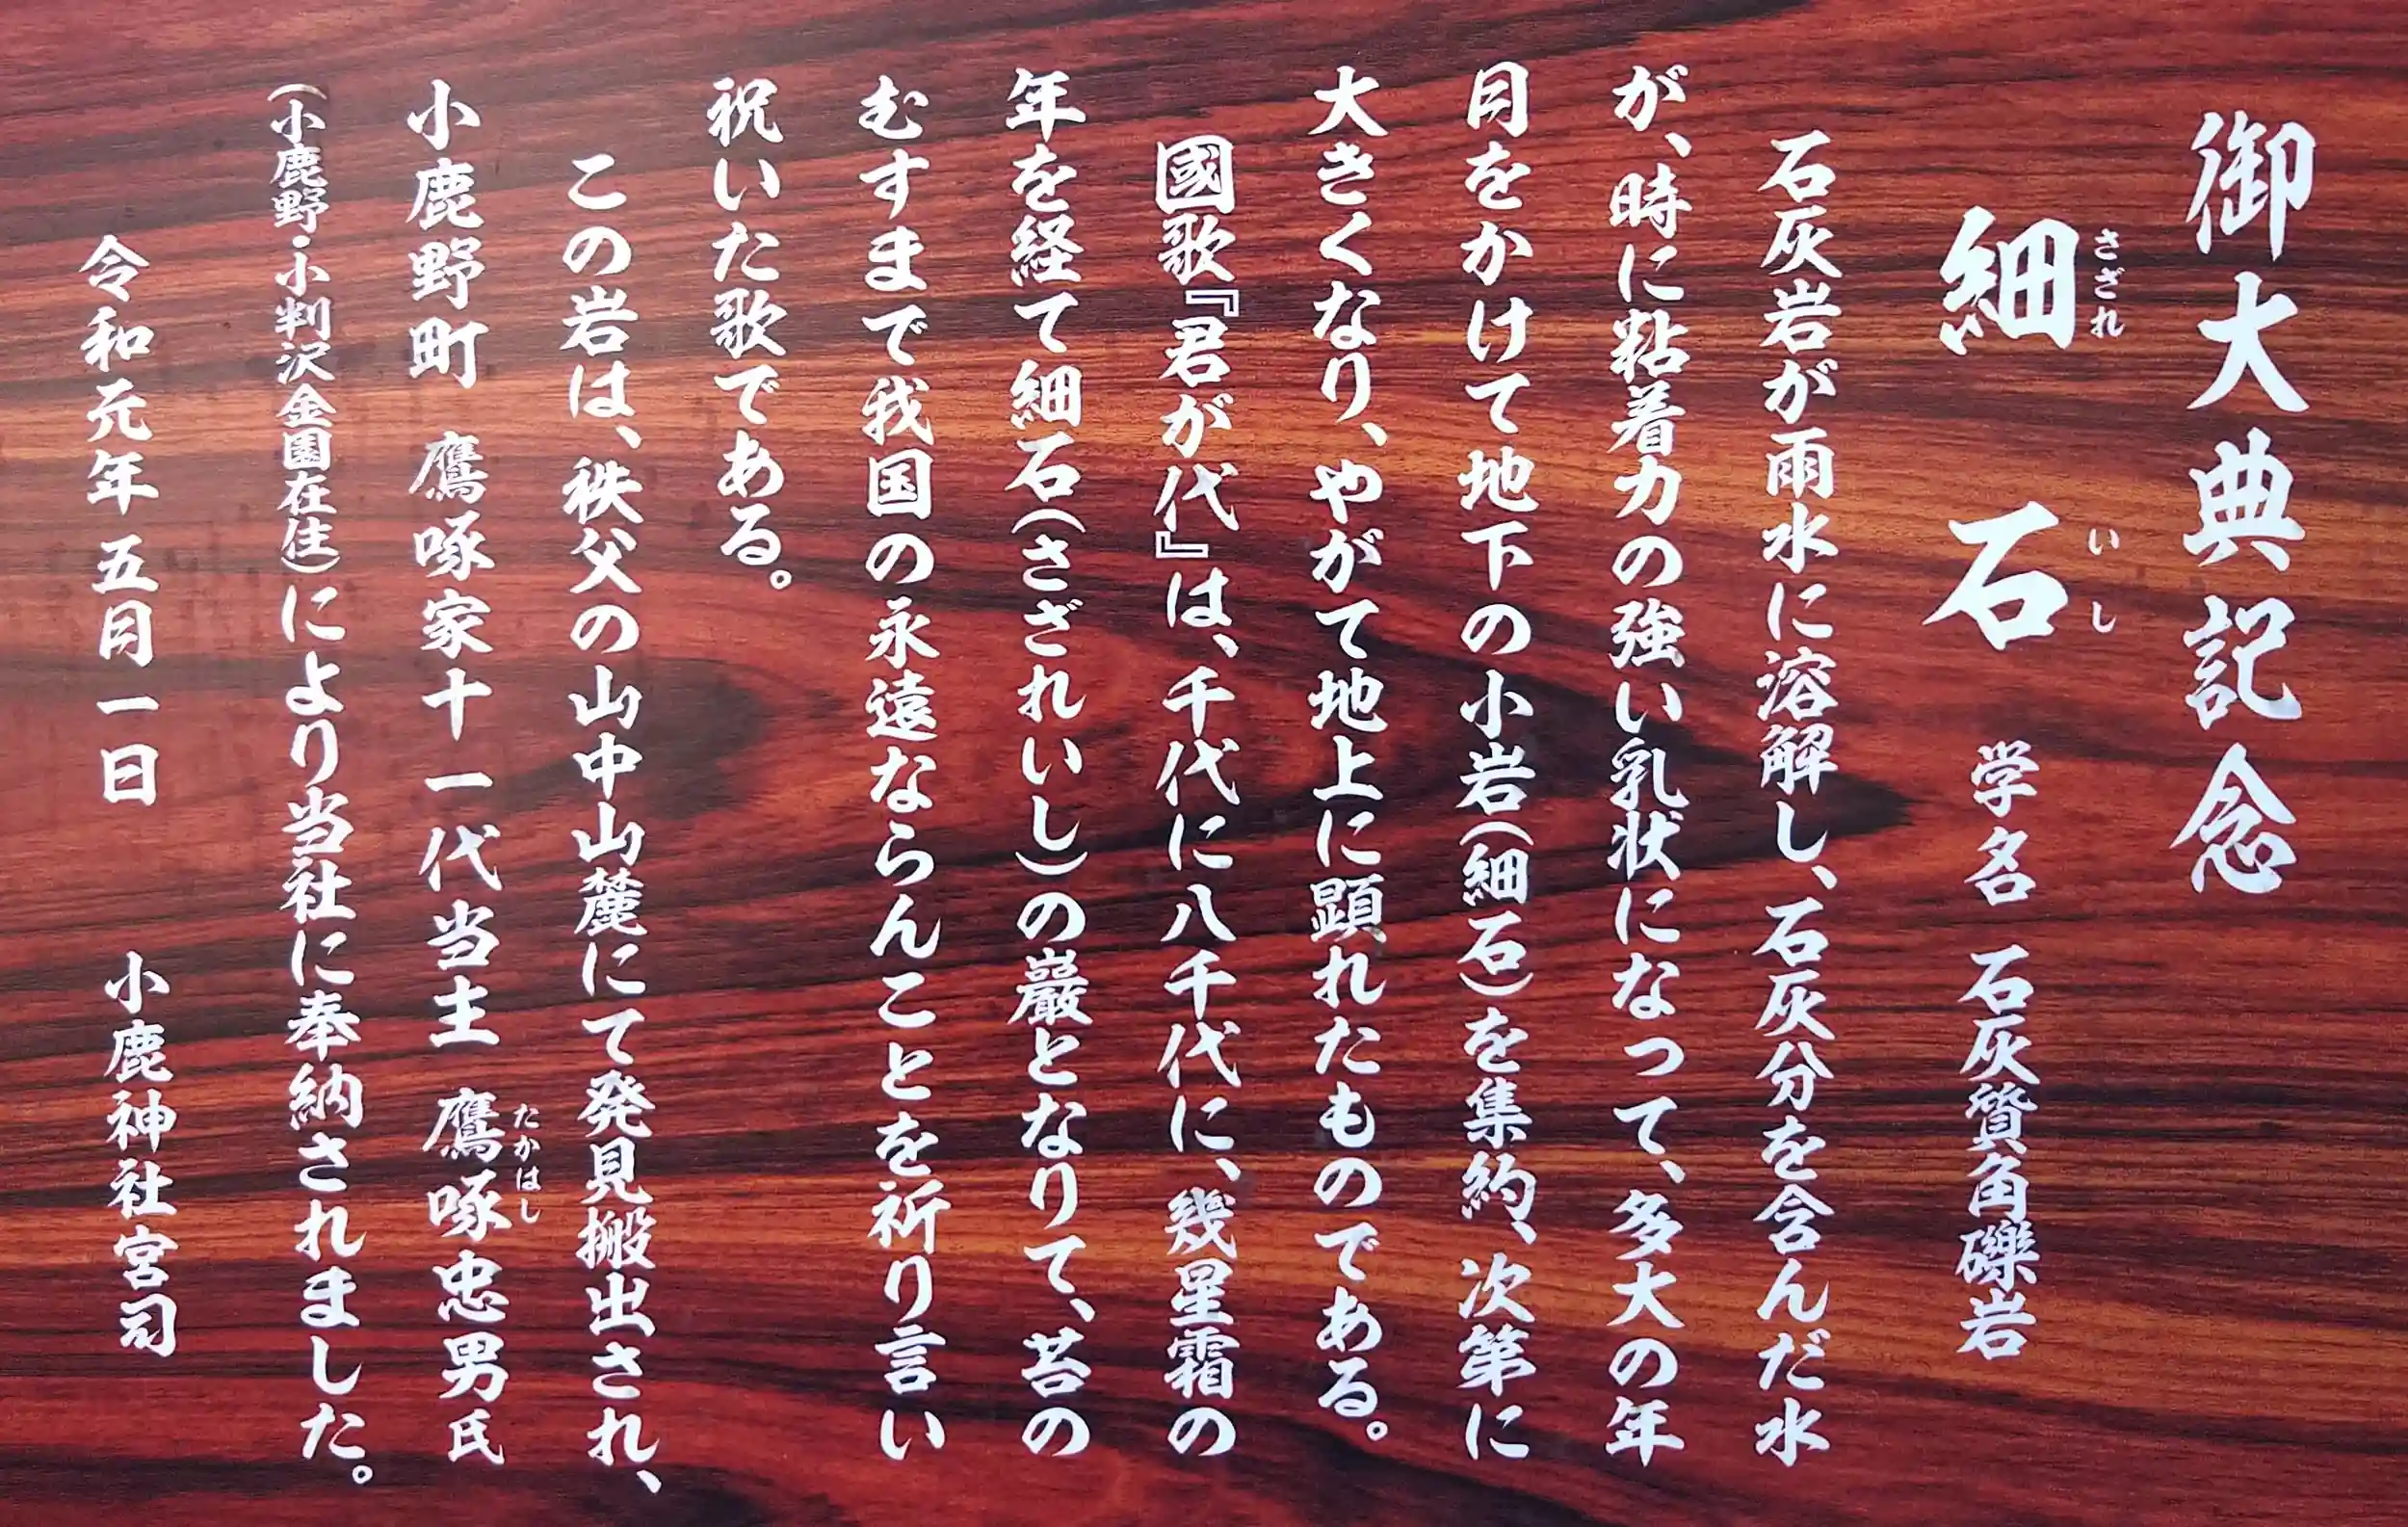 御大典記念
細石 学名 石灰質角礫岩
さざれ いし
石灰岩が雨水に溶解し、石灰分を含んだ水
が、時に粘着力の強い乳状になって、多大の年
月をかけて地下の小岩(細石)を集約、次第に
大きくなり、やがて地上に顕れたものである。
國歌『君が代』は、千代に八千代に、幾星霜の
年を経て細石(さざれいし)の巌となりて、苔の
むすまで我国の永遠ならんことを祈り言い
祝いた歌である。
この岩は、秩父の山中山麓にて発見搬出され、
小鹿野町 鷹啄家十一代当主 鷹啄忠男氏
たかはし
(小鹿野・小判沢金園在住)により当社に奉納されました。
令和元年五月一日 小鹿神社宮司